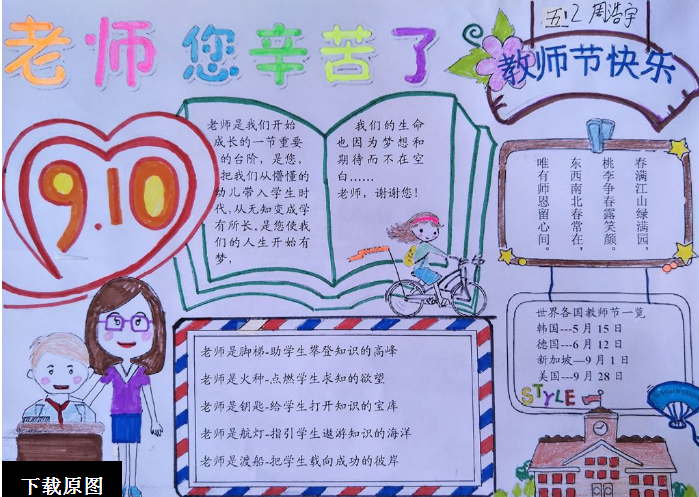 五2 周浩宇
老师 您辛苦了
教师节快乐
9.10
老师是我们开始
成长的一节重要
的台阶，是您，
把我们从懵懂的
幼儿带入学生时
代，从无知变成学
有所长，是您使我
们的人生开始有
梦，
我们的生命
也因为梦想和
期待而不在空
白……
老师，谢谢您！
春满江山绿满园，
桃李争春露笑颜。
东西南北春常在，
唯有师恩留心间。
世界各国教师节一览
韩国---5月15日
德国---6月12日
新加坡—9月1日
美国---9月28日
STYLE
老师是脚梯-助学生攀登知识的高峰
老师是火种-点燃学生求知的欲望
老师是钥匙-给学生打开知识的宝库
老师是航灯-指引学生遨游知识的海洋
老师是渡船-把学生载向成功的彼岸
下载原图